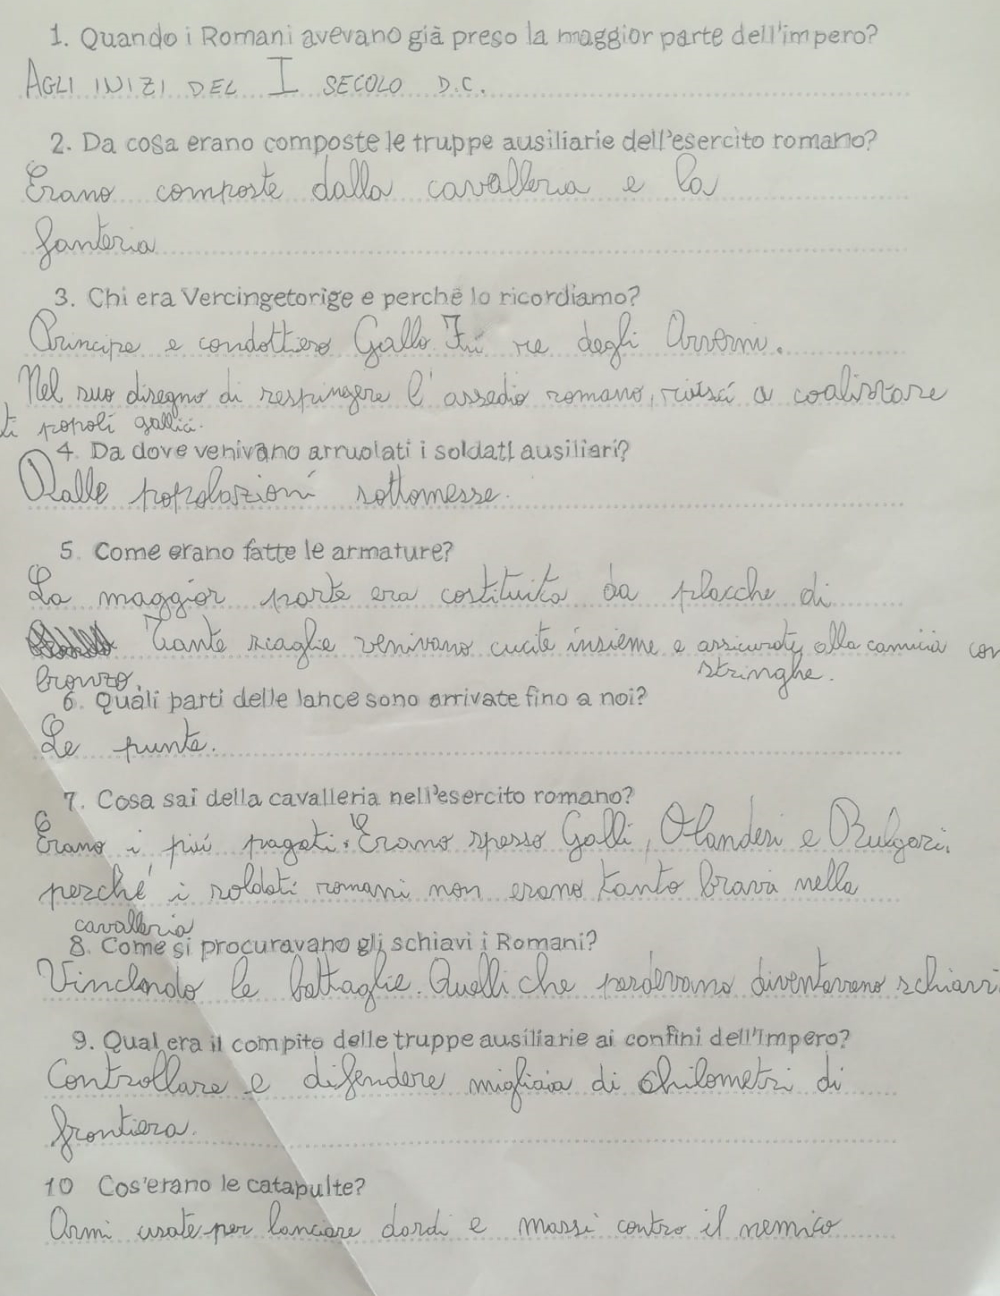 1. Quando i Romani avevano già preso la maggior parte dell'impero?
AGLI INIZI DEL I SECOLO D.C.
2. Da cosa erano composte le truppe ausiliarie dell'esercito romano?
Erano composte dalla cavalleria e la
fanteria
3. Chi era Vercingetorige e perchè lo ricordiamo?
Principe e condottiero Gallo. Fù re degli Arverni.
Nel suo disegno di respingere l'assedio romano, riuscì a coalizzare
ti popoli gallici.
4. Da dove venivano arruolati i soldati ausiliari?
Dalle popolazioni sottomesse.
5. Come erano fatte le armature?
La maggior parte era costituita da placche di
Tante scaglie venivano cucite insieme e assicurate alla camicia con
bronzo. stringhe.
6. Quali parti delle lance sono arrivate fino a noi?
Le punte.
7. Cosa sai della cavalleria nell'esercito romano?
Erano i più pagati. Erano spesso Galli, Olandesi e Bulgari,
perché i soldati romani non erano tanto bravi nella
cavalleria
8. Come si procuravano gli schiavi i Romani?
Vincendo le battaglie. Quelli che perdevano diventavano schiavi
9. Qual era il compito delle truppe ausiliarie ai confini dell'Impero?
Controllare e difendere migliaia di chilometri di
frontiera.
10 Cos'erano le catapulte?
Armi usate per lanciare dardi e massi contro il nemico